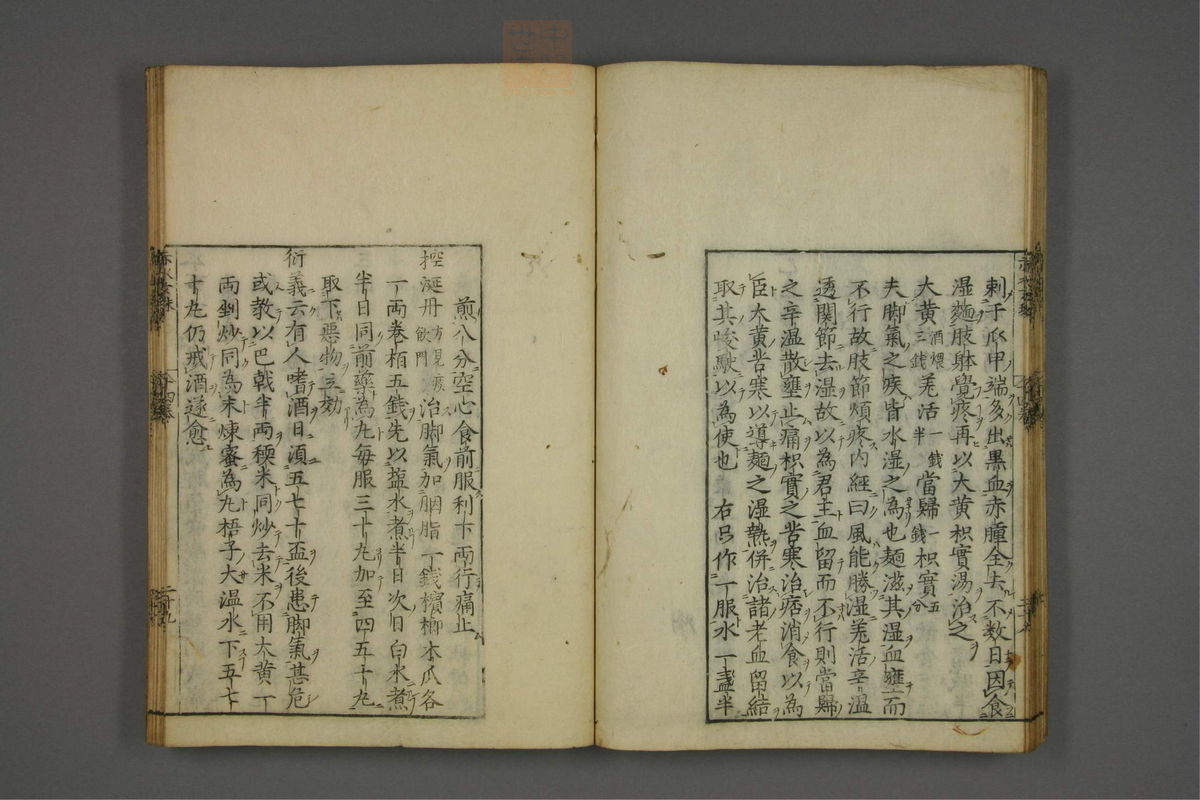 刺于爪甲端多出黒血赤腫全去不数日因食
湿麺肢躰覺疼再以大黄枳實湯治之
大黄酒煨三銭羗活一銭半當歸一銭枳實五分
夫脚氣之疾皆水湿之為也麺滋其湿血壅而
不行故肢節煩疼内經曰風能勝湿羗活辛温
透關節去湿故以為君主血留而不行則當歸
之辛温散壅止痛枳實之苦寒治痞消食以為
臣大黄苦寒以導麺之湿熱併治諸老血留結
取其峻駃以為使也 右㕮作一服水一盞半
煎八分空心食前服利下兩行痛止
控涎丹方見痰飲門治脚氣加胭脂一錢檳榔木瓜各
一兩卷栢五銭先以盐水煮半日次日白水煮
半日同前藥為丸毎服三十丸加至四五十丸
取下惡物立効
衍義云有人嗜酒日湏五七十盃後患脚氣甚危
或教以巴戟半兩糯米同炒去米不用大黄一
兩剉炒同為末煉蜜為丸梧子大温水下五七
十丸仍戒酒遂愈